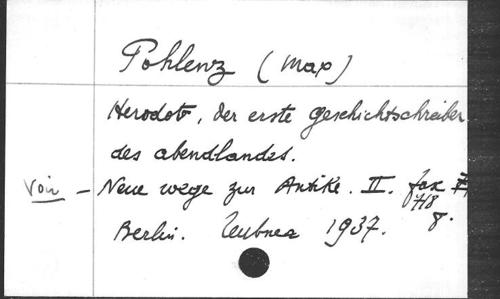 Pohlenz (Max)
Herodot, der erste geschichtschreiber
des abendlandes.
Voir - Neue wege zur Antike. II. fax
7/8 8.
Berlin. Teubner 1937.